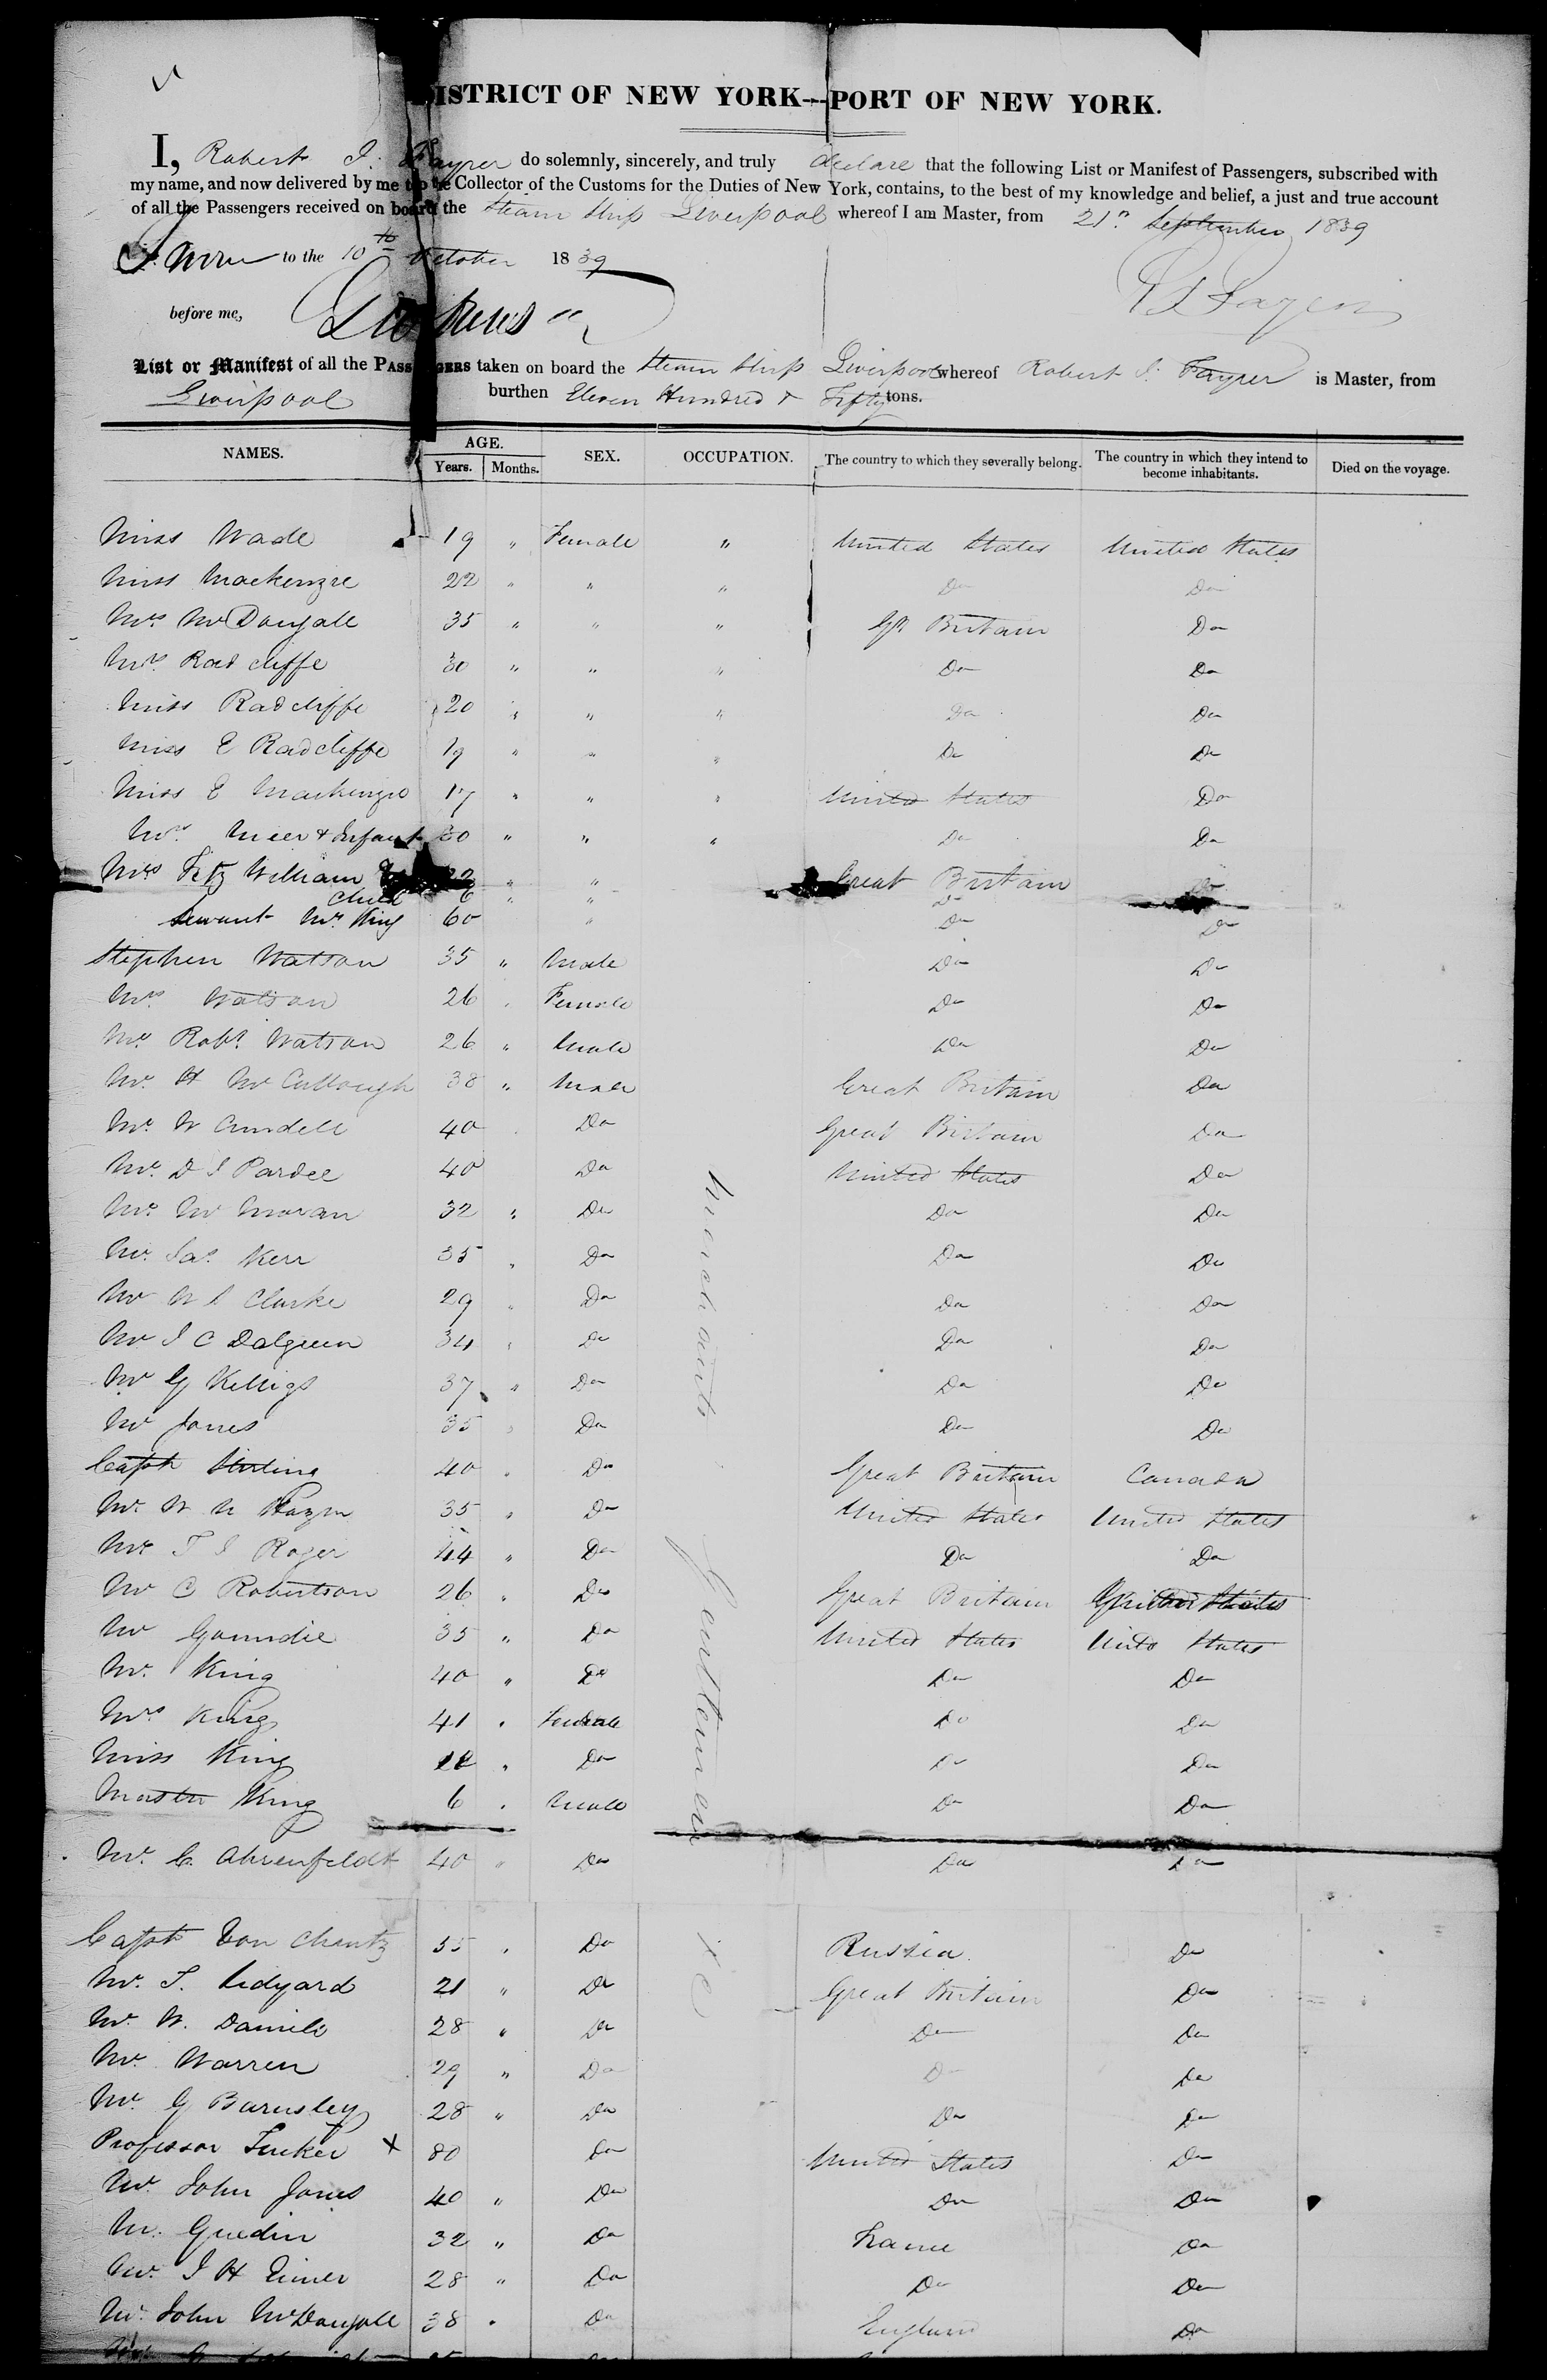 DISTRICT OF NEW YORK--PORT OF NEW YORK.
I, Robert I. Fayrer do solemnly, sincerely, and truly declare that the following List or Manifest of Passengers, subscribed with
my name, and now delivered by me to the Collector of the Customs for the Duties of New York, contains, to the best of my knowledge and belief, a just and true account
of all the Passengers received on board the Steam Ship Liverpool whereof I am Master, from 21st September 1839
Sworn to the 10th October 1839
before me,
List or Manifest of all the PASSENGERS taken on board the Steam Ship Liverpool whereof Robert I. Fayrer is Master, from
Liverpool burthen Eleven Hundred & Fifty tons.
NAMES. AGE. Years. Months. SEX. OCCUPATION. The country to which they severally belong. The country in which they intend to become inhabitants. Died on the voyage.
Miss Wade 19 " Female " United States United States
Miss Mackenzie 22 " " " Do Do
Mrs McDougall 35 " " " Gt Britain Do
Mrs Radcliffe 30 " " " Do Do
Miss Radcliffe 20 " " " Do Do
Miss E Radcliffe 19 " " " Do Do
Miss E Mackenzie 17 " " " United States Do
Mrs & Infant 30 " " " Do Do
Mrs Fitz William " " Great Britain Do
Child 6 " " Do
Servant Mrs King 60 " Do Do
Stephen Watson 35 " Male Do Do
Mrs Watson 26 " Female Do Do
Mr Robt Watson 26 " Male Do Do
Mr H McCullough 38 " Male Great Britain Do
Mr W Arundell 40 Do Great Britain Do
Mr D S Pardee 40 Do United States Do
Mr M Moran 32 " Do Do Do
Mr Jas Kerr 35 " Do Do Do
Mr W S Clarke 29 " Do Do Do
Mr I C Dalgreen 34 " Do Do Do
Mr G Kellogs 37 " Do Do Do
Mr Jones 35 " Do Do Do
Capt Stirling 40 " Do Great Britain Canada
Mr W N 35 " Do United States United States
Mr T S Roger 44 " Do Do Do
Mr C Robertson 26 " Do Great Britain
Mr Goundie 35 " Do United States Unitd States
Mr King 40 " Do Do Do
Mrs King 41 " Female Do Do
Miss King " Do Do Do
Master King 6 " Male Do Do
Merchants Gentlemen &c
Mr C. Ahrenfeldt 40 " Do Do Do
Capt Von Chantz 35 " Do Russia Do
Mr T. Lidyard 21 " Do Great Britain Do
Mr W. Daniels 28 " Do Do Do
Mr Warren 29 " Do Do Do
Mr G Barnsley 28 " Do Do Do
Professor Tucker X 80 Do United States Do
Mr John Jones 40 " Do Do Do
Mr Guedin 32 " Do France Do
Mr I H Eimer 28 " Do Do Do
Mr John McDougall 38 " Do England Do